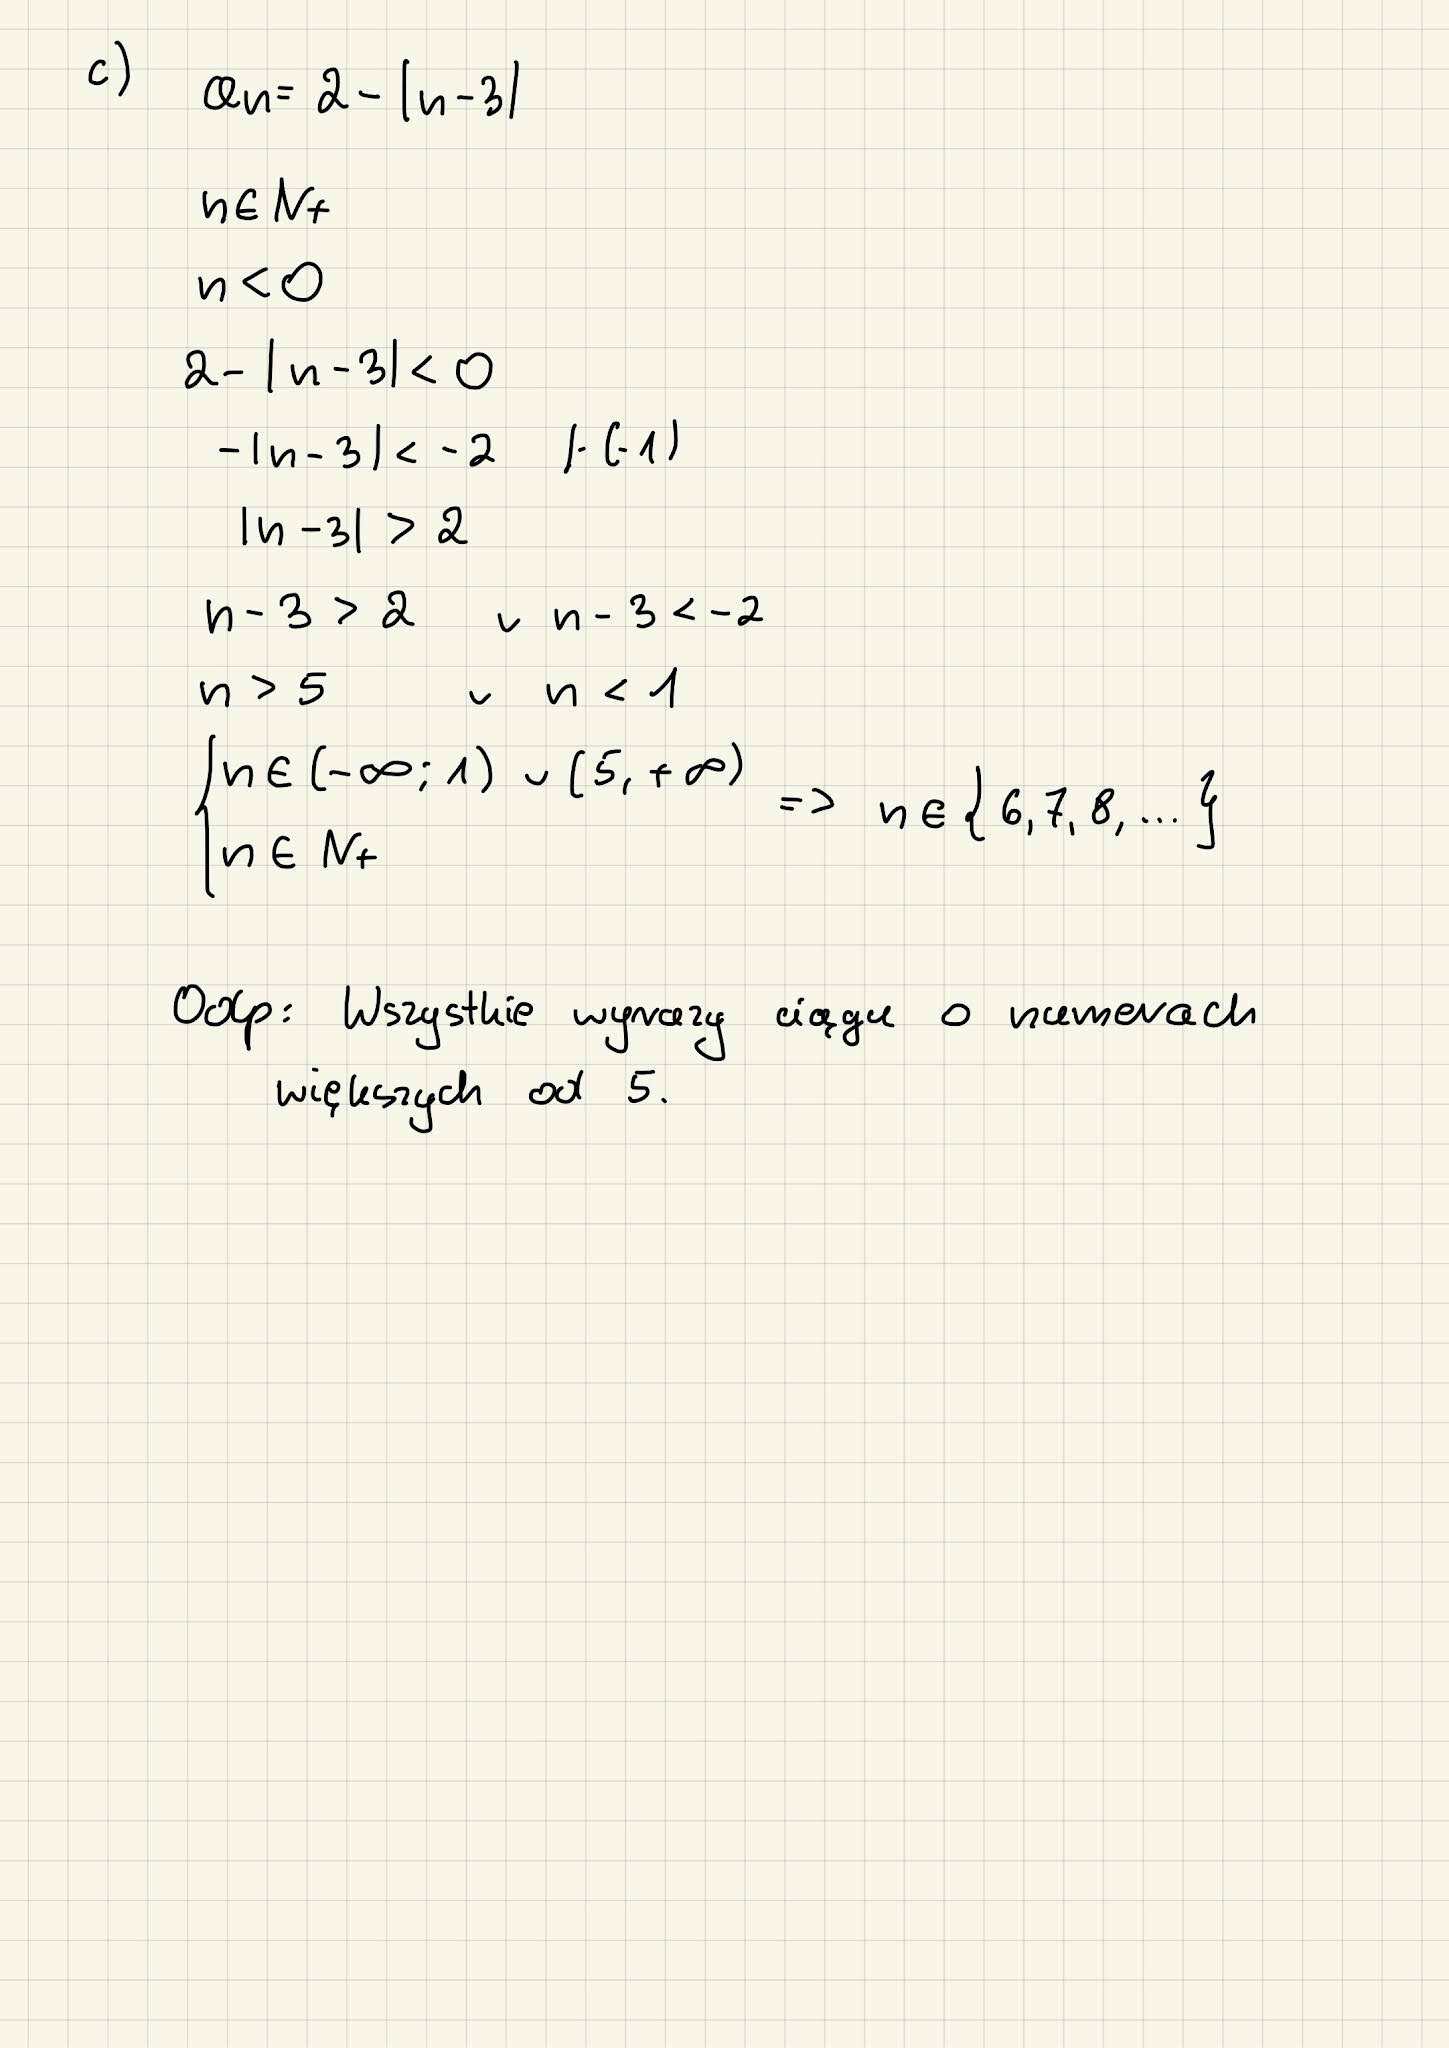 c) an = 2 - |n-3|
n ∈ N+
n < 0
2 - |n-3| < 0
-|n-3| < -2 |·(-1)
|n-3| > 2
n-3 > 2 ∨ n-3 < -2
n > 5 ∨ n < 1
{ n ∈ (-∞; 1) ∪ (5, +∞)
n ∈ N+ => n ∈ {6, 7, 8, ...}
Odp: Wszystkie wyrazy ciągu o numerach
większych od 5.